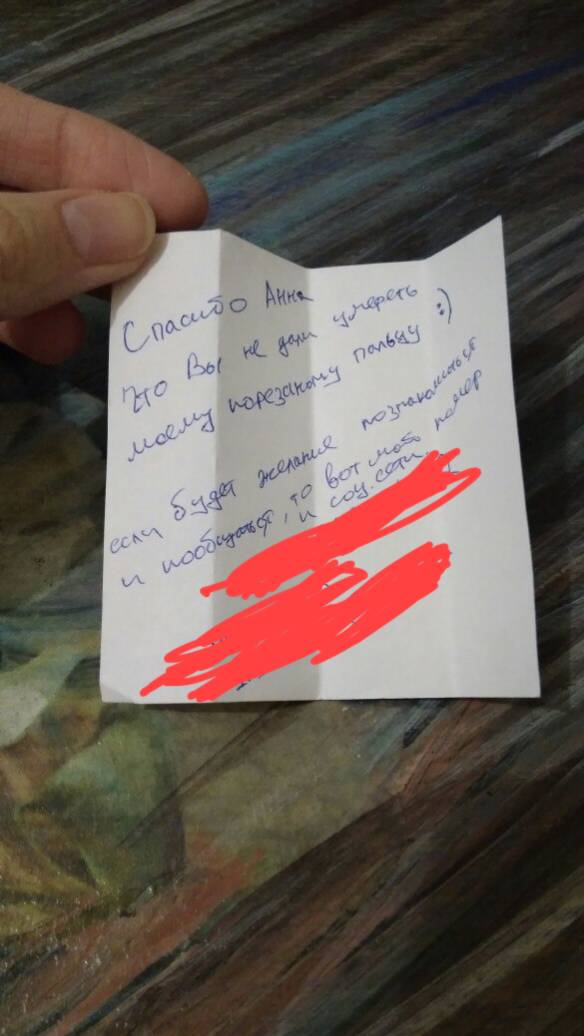 Спасибо Анна
что Вы не дали умереть
моему порезаному пальцу :)
если будет желание познакомиться
и пообщаться, то вот мой номер
и соц.сети